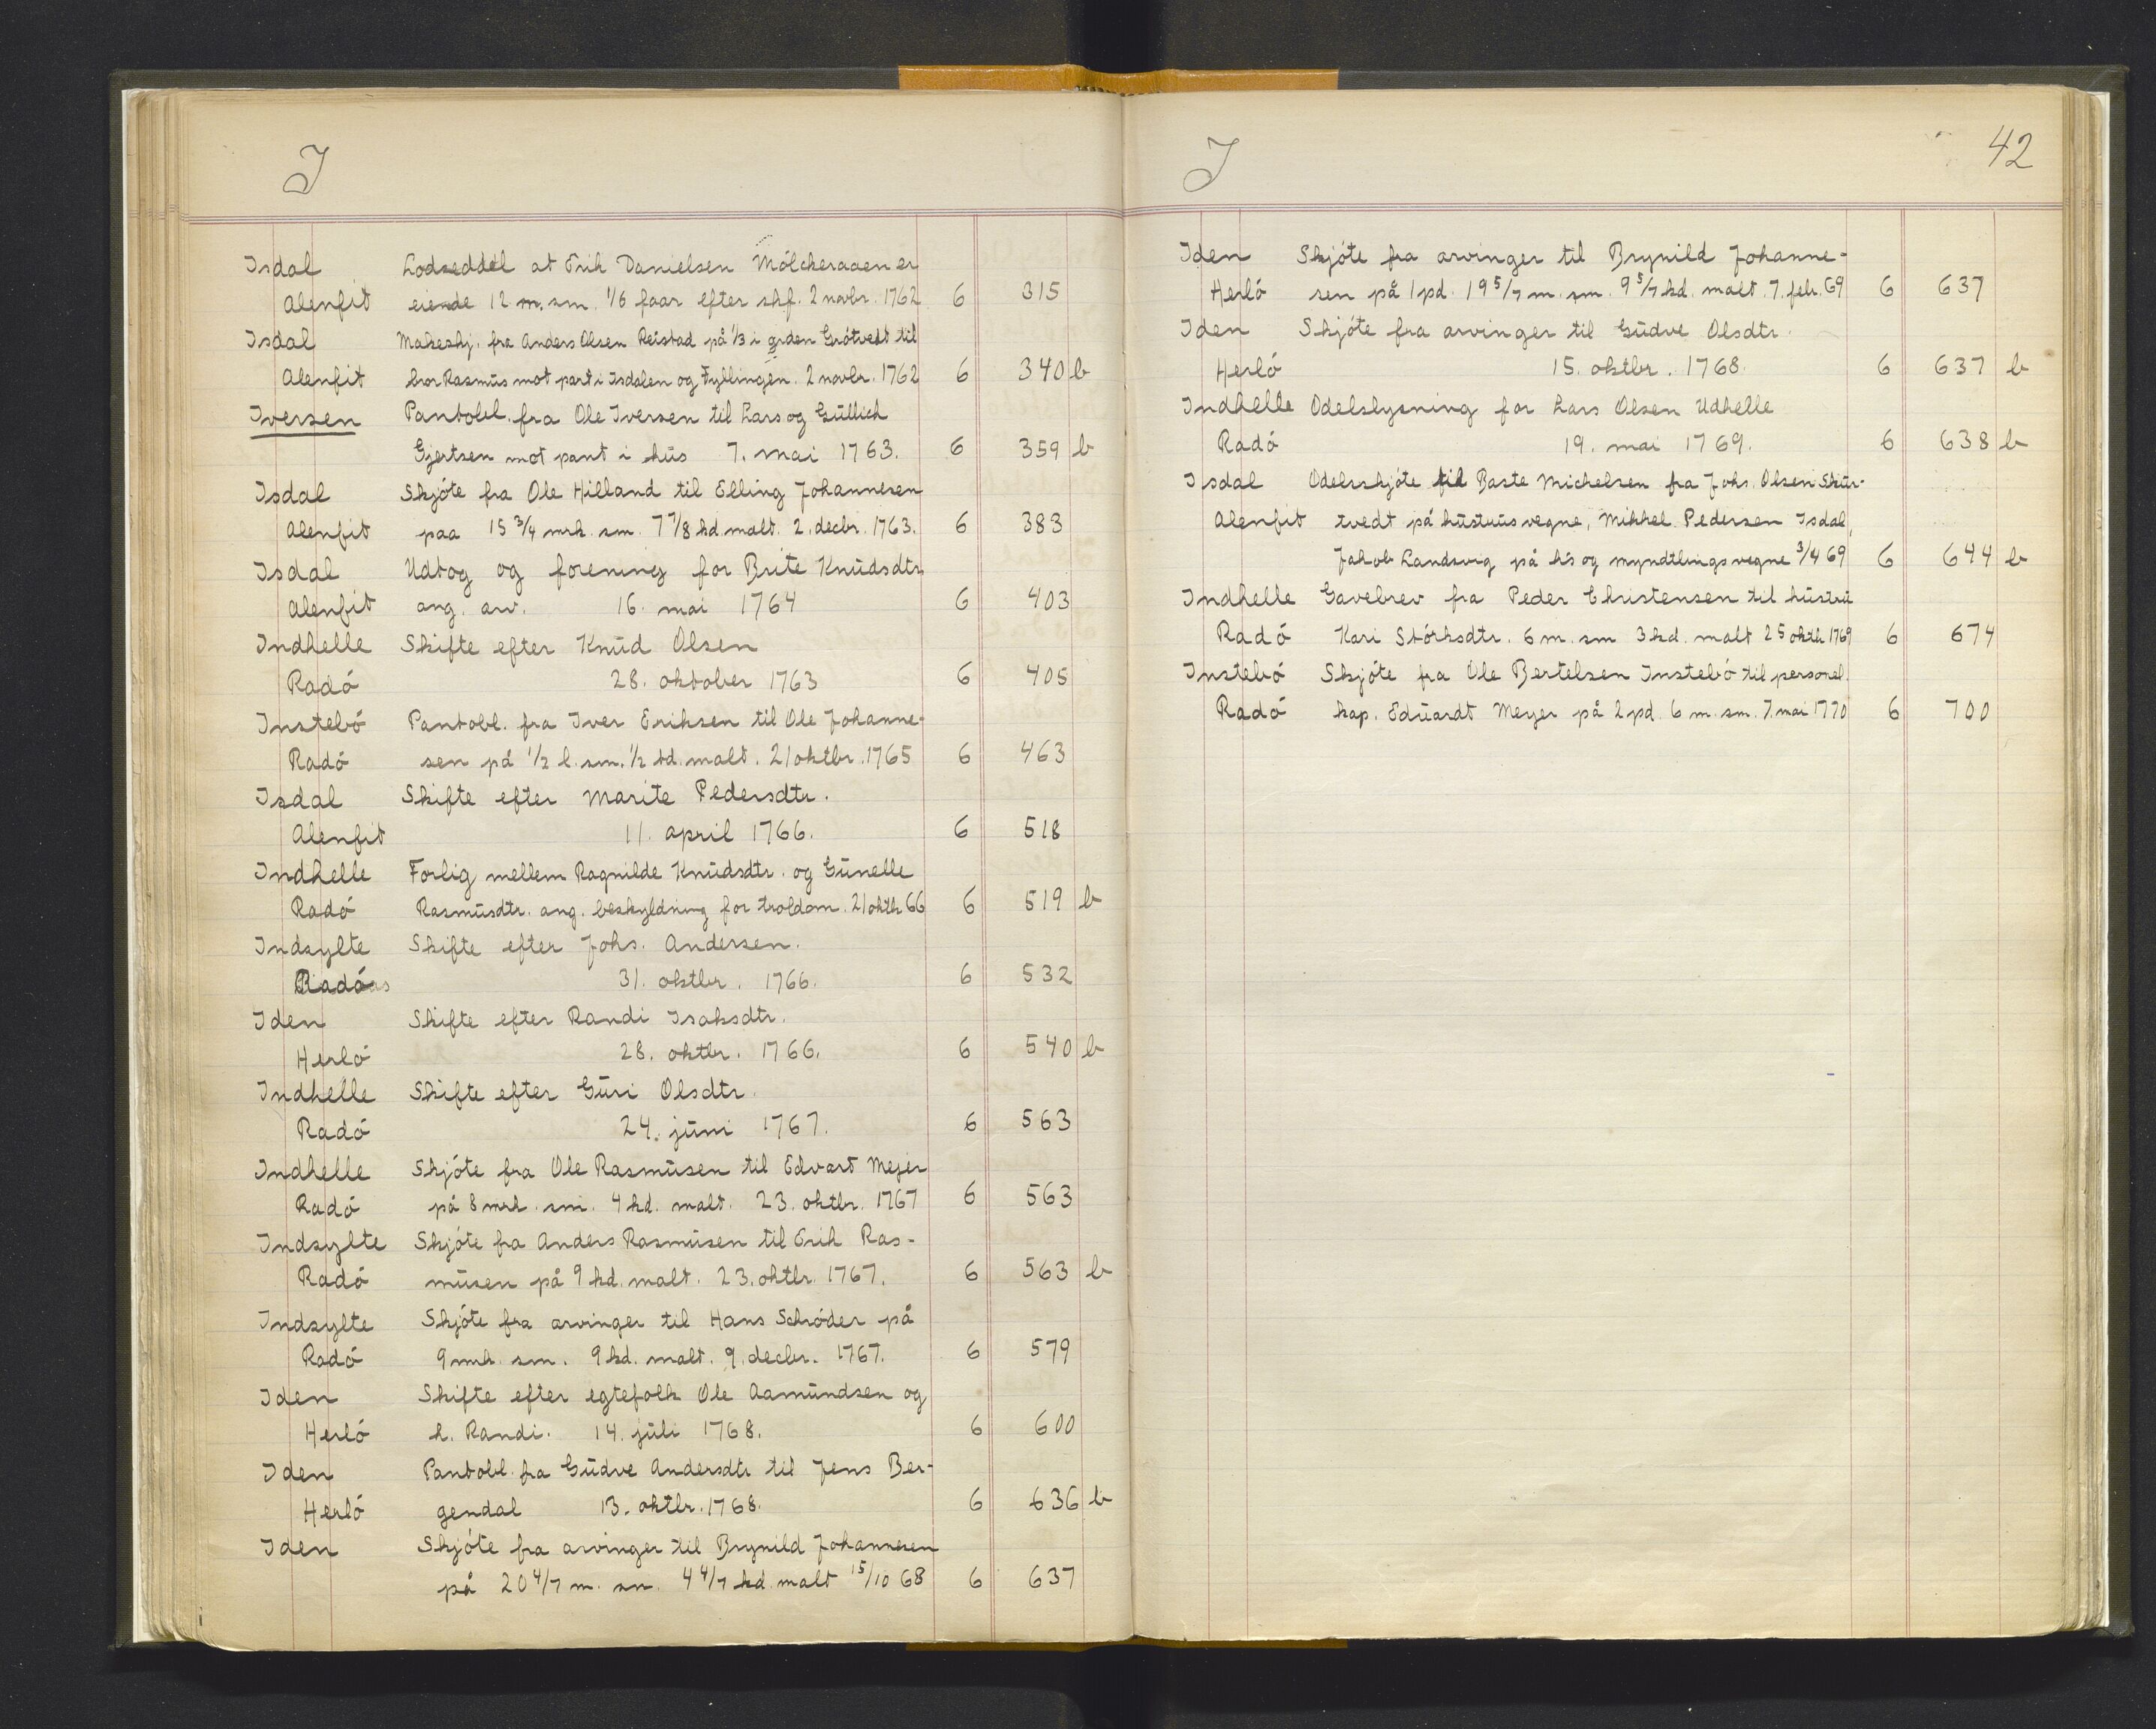 I
Isdal Lodseddel at Erik Danielsen Mölckeraaen er
Alenfit eiende 12 m. sm. 1/6 faar efter skf. 2 novbr. 1762 6 315
Isdal Makeskj. fra Anders Olsen Reistad på 1/3 i grden Grótvedt til
Alenfit bror Rasmus mot part i Isdalen og Fyllingen. 2 novbr. 1762 6 340 b
Iversen Pantobl. fra Ole Iversen til Lars og Gullich
Gjertsen mot pant i hus 7. mai 1763. 6 359 b
Isdal Skjóte fra Ole Hilland til Elling Johannesen
Alenfit paa 15 3/4 mrk. sm. 7 7/8 kd. malt. 2. decbr. 1763. 6 383
Isdal Udtog og forening for Brite Knudsdtr.
Alenfit ang. arv. 16. mai 1764 6 403
Indhelle Skifte efter Knud Olsen
Radó 28. oktober 1763 6 405
Instebó Pantobl. fra Iver Eriksen til Ole Johanne-
Radó sen på 1/2 l. sm. 1/2 td. malt. 21 oktbr. 1765 6 463
Isdal Skifte efter Marite Pedersdtr.
Alenfit 11. april 1766. 6 518
Indhelle Forlig mellem Ragnilde Knudsdtr. og Gunelle
Radó Rasmusdtr. ang. beskyldning for troldom. 21 oktbr 66 6 519 b
Indsylte Skifte efter Johs. Andersen.
Radó 31. oktbr. 1766. 6 532
Iden Skifte efter Randi Isaksdtr.
Herló 28. oktbr. 1766. 6 540 b
Indhelle Skifte efter Guri Olsdtr.
Radó 24. juni 1767. 6 563
Indhelle Skjóte fra Ole Rasmusen til Edvart Mejer
Radó på 8 mrk. sm. 4 kd. malt. 23. oktbr. 1767 6 563
Indsylte Skjóte fra Anders Rasmusen til Erik Ras-
Radó musen på 9 kd. malt. 23. oktbr. 1767. 6 563 b
Indsylte Skjóte fra arvinger til Hans Schróder på
Radó 9 mrk. sm. 9 kd. malt. 9. decbr. 1767. 6 579
Iden Skifte efter egtefolk Ole Aamundsen og
Herló h. Randi. 14. juli 1768. 6 600
Iden Pantobl. fra Gudve Andersdtr til Jens Ber-
Herló gendal 13. oktbr. 1768. 6 636 b
Iden Skjóte fra arvinger til Brynild Johannesen
på 20 4/7 m. sm. 4 4/7 kd. malt 15/10 68 6 637
I 42
Iden Skjóte fra arvinger til Brynild Johanne-
Herló sen på 1 pd. 19 5/7 m. sm. 9 5/7 kd. malt. 7. febr. 69 6 637
Iden Skjóte fra arvinger til Gudve Olsdtr.
Herló 15. oktbr. 1768. 6 637 b
Indhelle Odelslysning for Lars Olsen Udhelle
Radó 19. mai 1769. 6 638 b
Isdal Odelsskjóte til Baste Michelsen fra Johs. Olsen Skur-
Alenfit tvedt på hustrus vegne, Mikkel Pedersen Isdal,
Jakob Landsvig på hs og myndtlings vegne 3/4 69 6 644 b
Indhelle Gavebrev fra Peder Christensen til hustru
Radó Kari Stórksdtr. 6 m. sm 3 kd. malt 25 oktbr 1769 6 674
Instebó Skjóte fra Ole Bertelsen Instebó til personel.
Radó kap. Eduardt Meyer på 2 pd. 6 m. sm. 7. mai 1770 6 700